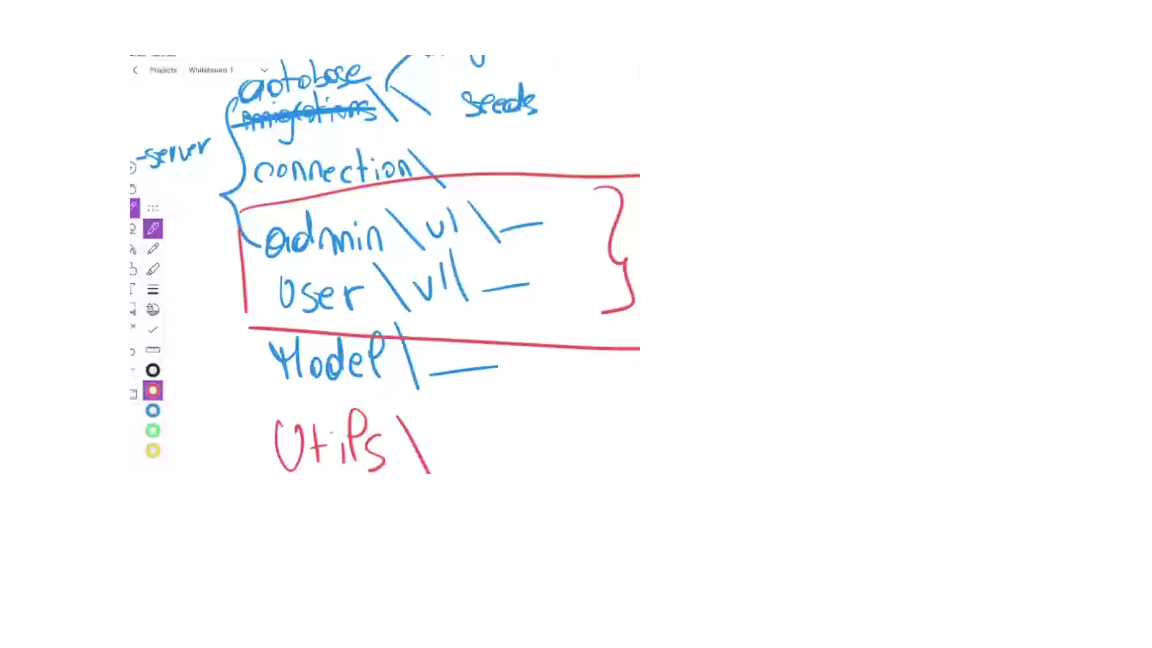 Projects Whiteboard 1
aotobase
migrations \ seeds
-server
connection\
admin \v1 \
User \v1\
Model \
Utils \